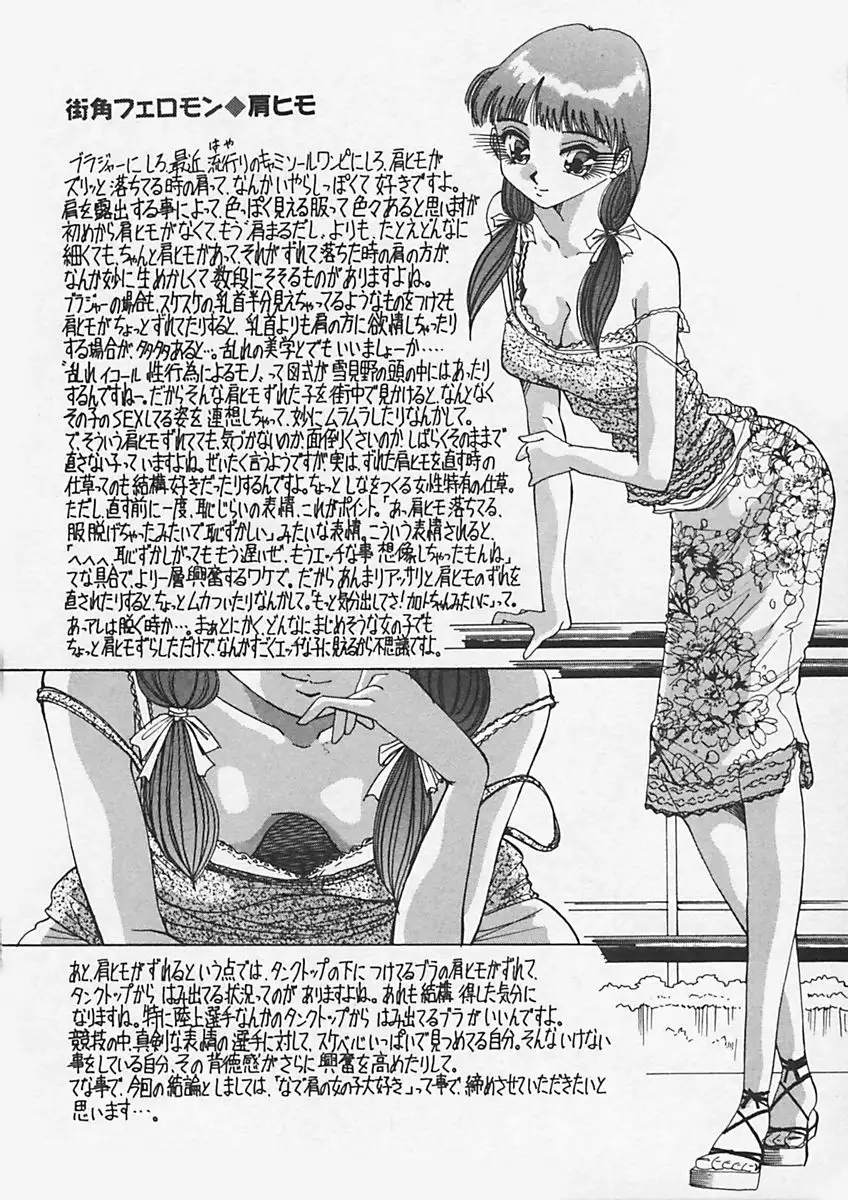 街角フェロモン◆肩ヒモ
ブラジャーにしろ、最近 流行りのキャミソールワンピにしろ、肩ヒモが
はや
ズリッと落ちてる時の肩って、なんかいやらしっぽくて 好きですよ。
肩を露出する事によって、色っぽく見える服って 色々あると思いますが
初めから肩ヒモがなくて、もう“肩まるだし”よりも、たとえどんなに
細くても、ちゃんと肩ヒモがあって、それがずれて落ちた時の肩の方が、
なんか妙に生めかしくて 数段にそそるものがありますよね。
ブラジャーの場合も、スケスケの、乳首半分見えちゃってるようなものをつけても
肩ヒモがちょっとずれてたりすると、乳首よりも肩の方に欲情しちゃったり
する場合が多々多々あると…。乱れの美学とでもいいましょーか‥‥
“乱れ イコール 性行為によるモノ”って図式が 雪見野の頭の中にはあったり
するんですねー。だからそんな肩ヒモずれた子を街中で見かけると、なんとなく
その子のSEXしてる姿を 連想しちゃって、妙にムラムラしたりなんかして。
で、そういう肩ヒモずれてても、気づかないのか、面倒りくさいのか、しばらくそのままで
直さない子っていますよね。ぜいたく言うようですが実は、ずれた肩ヒモを直す時の
仕草ってのも結構好きだったりするんですよ。ちょっとしなをつくる女性特有の仕草。
ただし、直す前に一度、恥じらいの表情、これがポイント。「あっ、肩ヒモ落ちてる、
服脱げちゃったみたいで恥ずかしい」みたいな表情。こういう表情されると、
「へへへ、恥ずかしがってももう遅いぜ、もうエッチな事 想像しちゃったもんね」
てな具合でより一層興奮するワケで。だからあんまりアッサリと肩ヒモのずれを
直されたりすると、ちょっとムカついたりなんかして。“もっと気分出してさ!加トちゃんみたいに”って。
あ…アレは脱ぐ時か…。まぁとにかく どんなにまじめそうな女の子でも
ちょっと肩ヒモずらしただけで、なんかすごくエッチな子に見えるから不思議ですよ。
あと、肩ヒモがずれるという点では、タンクトップの下につけてるブラの肩ヒモがずれて、
タンクトップから はみ出てる状況ってのが ありますよね。あれも結構 得した気分に
なりますね。特に陸上選手なんかのタンクトップから はみ出てるブラがいいんですよ。
競技の中、真剣な表情の選手に対して、スケベ心いっぱいで見つめてる自分。そんないけない
事をしている自分、その背徳感がさらに興奮を高めたりして。
てな事で、今回の結論としましては、「なで肩の女の子大好き」って事で、締めさせていただきたいと
思います…。